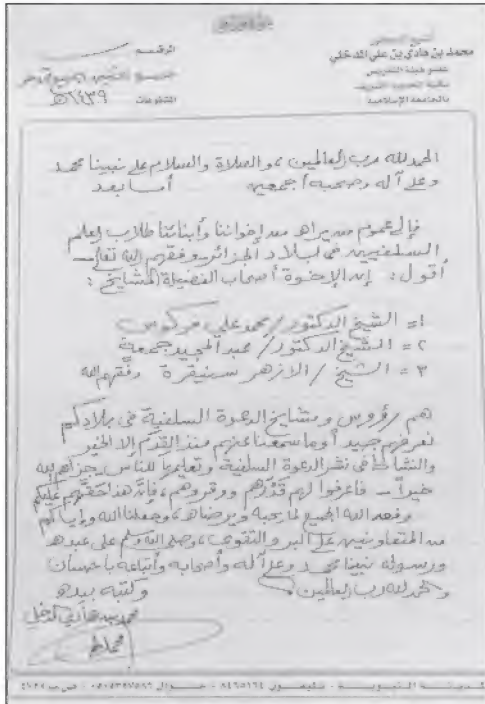 محمد بن هادي بن علي المدخلي
عضو هيئة التدريس
بالجامعة الإسلامية
الرقم
التاريخ
المشفوعات
الحمد لله رب العالمين، والصلاة والسلام على نبينا محمد
وعلى آله وصحبه أجمعين أما بعد
فإلى عموم من يراه من إخواننا وأبنائنا طلاب العلم
السلفيين في بلاد الجزائر وفقهم الله تعالى
أقول: إن الإخوة أصحاب الفضيلة المشايخ:
١= الشيخ الدكتور/ محمد علي فركوس
٢= الشيخ الدكتور/ عبد المجيد جمعة
٣= الشيخ/ الأزهر سنيقرة وفقهم الله
هم رؤوس ومشايخ الدعوة السلفية في بلادكم
نعرفهم جيدا وما سمعنا عنهم منذ القدم إلا الخير
والنشاط في نشر الدعوة السلفية وتعليمها للناس جزاهم الله
خيراً - فاعرفوا لهم قدرهم ووقروهم، فإن هذا حقهم عليكم
وفق الله الجميع لما يحبه ويرضاه، وجعلنا الله وإياكم
من المتعاونين على البر والتقوى، وصلى الله وسلم على عبده
ورسوله نبينا محمد وعلى آله وأصحابه وأتباعه بإحسان
والحمد لله رب العالمين وكتبه بيده
محمد بن هادي المدخلي